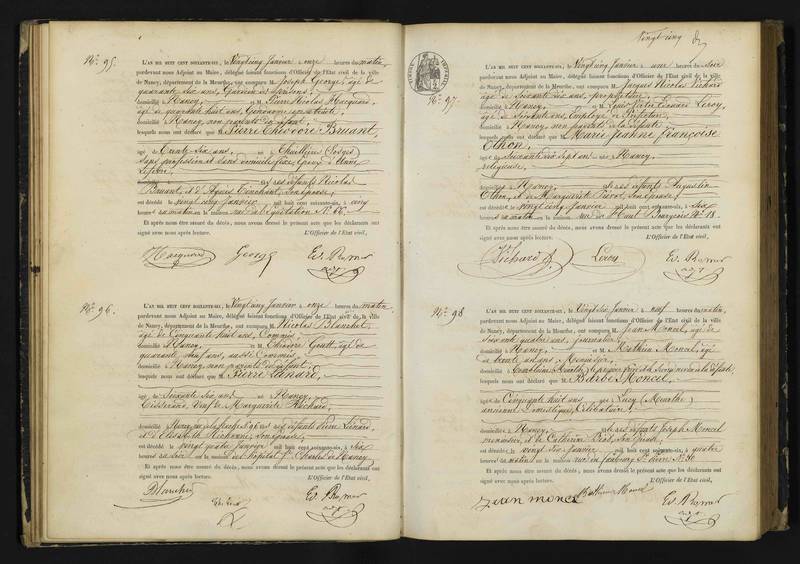 No. 95.
L'AN MIL HUIT CENT SOIXANTE-SIX, le Vingt cinq Janvier à onze heures du matin,
pardevant nous Adjoint au Maire, délégué faisant fonctions d'Officier de l'Etat civil de la ville
de Nancy, département de la Meurthe, ont comparu M. Joseph George, âgé de
quarante six ans,
domicilié à Nancy, et M. Pierre Nicolas Hacquard,
âgé de quarante huit ans,
domicilié à Nancy, non parents du défunt,
lesquels nous ont déclaré que M. Pierre Théodore Bruant,
âgé de Trente six ans, né à (Vosges)
sans profession et sans domicile fixe, Epoux d'Anne
Lefebvre,
domicilié à et des défunts Nicolas
Bruant, et d'Agnès son épouse,
est décédé le vingt cinq janvier mil huit cent soixante-six, à cinq
heures du matin en la maison rue de l'Equitation No. 56.
Et après nous être assuré du décès, nous avons dressé le présent acte que les déclarants ont
signé avec nous après lecture. L'Officier de l'Etat civil,
Hacquard George Ed. Ramer
adj.
No. 96.
L'AN MIL HUIT CENT SOIXANTE-SIX, le Vingt cinq Janvier à onze heures du matin,
pardevant nous Adjoint au Maire, délégué faisant fonctions d'Officier de l'Etat civil de la ville
de Nancy, département de la Meurthe, ont comparu M. Nicolas Blanchet,
âgé de Cinquante huit ans, Commis,
domicilié à Nancy, et M. Théodore
quarante neuf ans, aussi Commis,
domicilié à Nancy, non parents du défunt,
lesquels nous ont déclaré que M. Pierre Lanard,
âgé de Soixante six ans né à Nancy,
Tisserand, Veuf de Marguerite Richard,
domicilié à Nancy, des défunts Pierre Lanard,
et d'Elisabeth son épouse,
est décédé le vingt quatre janvier mil huit cent soixante-six, à Six
heures du soir en la maison de l'hôpital St Charles de Nancy
Et après nous être assuré du décès, nous avons dressé le présent acte que les déclarants ont
signé avec nous après lecture. L'Officier de l'Etat civil,
Blanchet Ed. Ramer
adj.
Vingt cinq
No. 97.
L'AN MIL HUIT CENT SOIXANTE-SIX, le Vingt cinq Janvier à une heure du soir
pardevant nous Adjoint au Maire, délégué faisant fonctions d'Officier de l'Etat civil de la ville
de Nancy, département de la Meurthe, ont comparu M. Jacques Nicolas Richard
âgé de Soixante six ans, propriétaire,
domicilié à Nancy, et M. Louis Victor Edouard Leroy,
âgé de Soixante ans, Employé de Préfecture,
domicilié à Nancy, non parents de la défunte,
lesquels nous ont déclaré que M. Marie Jeanne Françoise
Thon,
âgée de Soixante dix sept ans née à Nancy,
religieuse,
domiciliée à Nancy, des défunts Augustin
Thon, et de Marguerite son épouse,
est décédée le vingt cinq janvier mil huit cent soixante-six, à Six
heures du matin en la maison rue des Haut Bourgeois No. 18.
Et après nous être assuré du décès, nous avons dressé le présent acte que les déclarants ont
signé avec nous après lecture. L'Officier de l'Etat civil,
Richard Leroy Ed. Ramer
adj.
No. 98
L'AN MIL HUIT CENT SOIXANTE-SIX, le Vingt Six Janvier à neuf heures du matin,
pardevant nous Adjoint au Maire, délégué faisant fonctions d'Officier de l'Etat civil de la ville
de Nancy, département de la Meurthe, ont comparu M. Jean Moncel, âgé de
soixante quatre ans, journalier,
domicilié à Nancy, et M. Mathieu Moncel, âgé
de trente ans, Menuisier,
domicilié à
lesquels nous ont déclaré que M. Barbe Moncel,
âgée de Cinquante huit ans née à Lucy (Meurthe)
ancienne Domestique, Célibataire,
domiciliée à Nancy, des défunts Joseph Moncel
menuisier, et de Catherine son épouse,
est décédée le vingt six janvier mil huit cent soixante-six, à quatre
heures du matin en la maison rue du faubourg St Pierre No.
Et après nous être assuré du décès, nous avons dressé le présent acte que les déclarants ont
signé avec nous après lecture. L'Officier de l'Etat civil,
jean moncel Mathieu Moncel Ed. Ramer
adj.